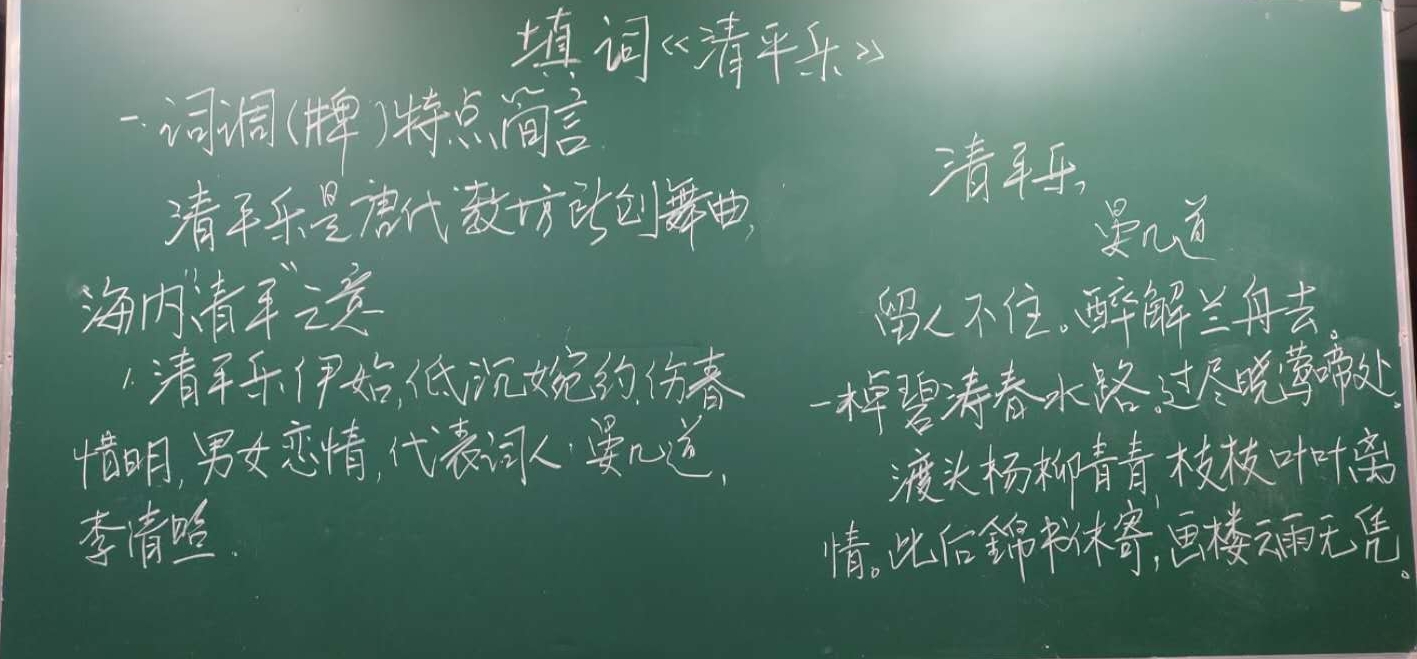 填词《清平乐》
一.词调(牌)特点简言.
清平乐是唐代教坊所创舞曲,
海内"清平"之意
1.清平乐伊始,低沉婉约,伤春
惜明,男女恋情,代表词人:晏几道,
李清照.
清平乐,
晏几道
留人不住。醉解兰舟去。
一棹碧涛春水路。过尽晓莺啼处。
渡头杨柳青青,枝枝叶叶离
情。此后錦书休寄,画楼云雨无凭。